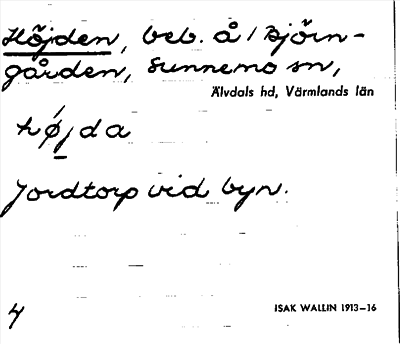 Höjden, beb. å 1 Björn-
gården, Sunnemo sn,
Älvdals hd, Värmlands län
hø̀j̠da
Jordtorp vid byn.
4
ISAK WALLIN 1913–16